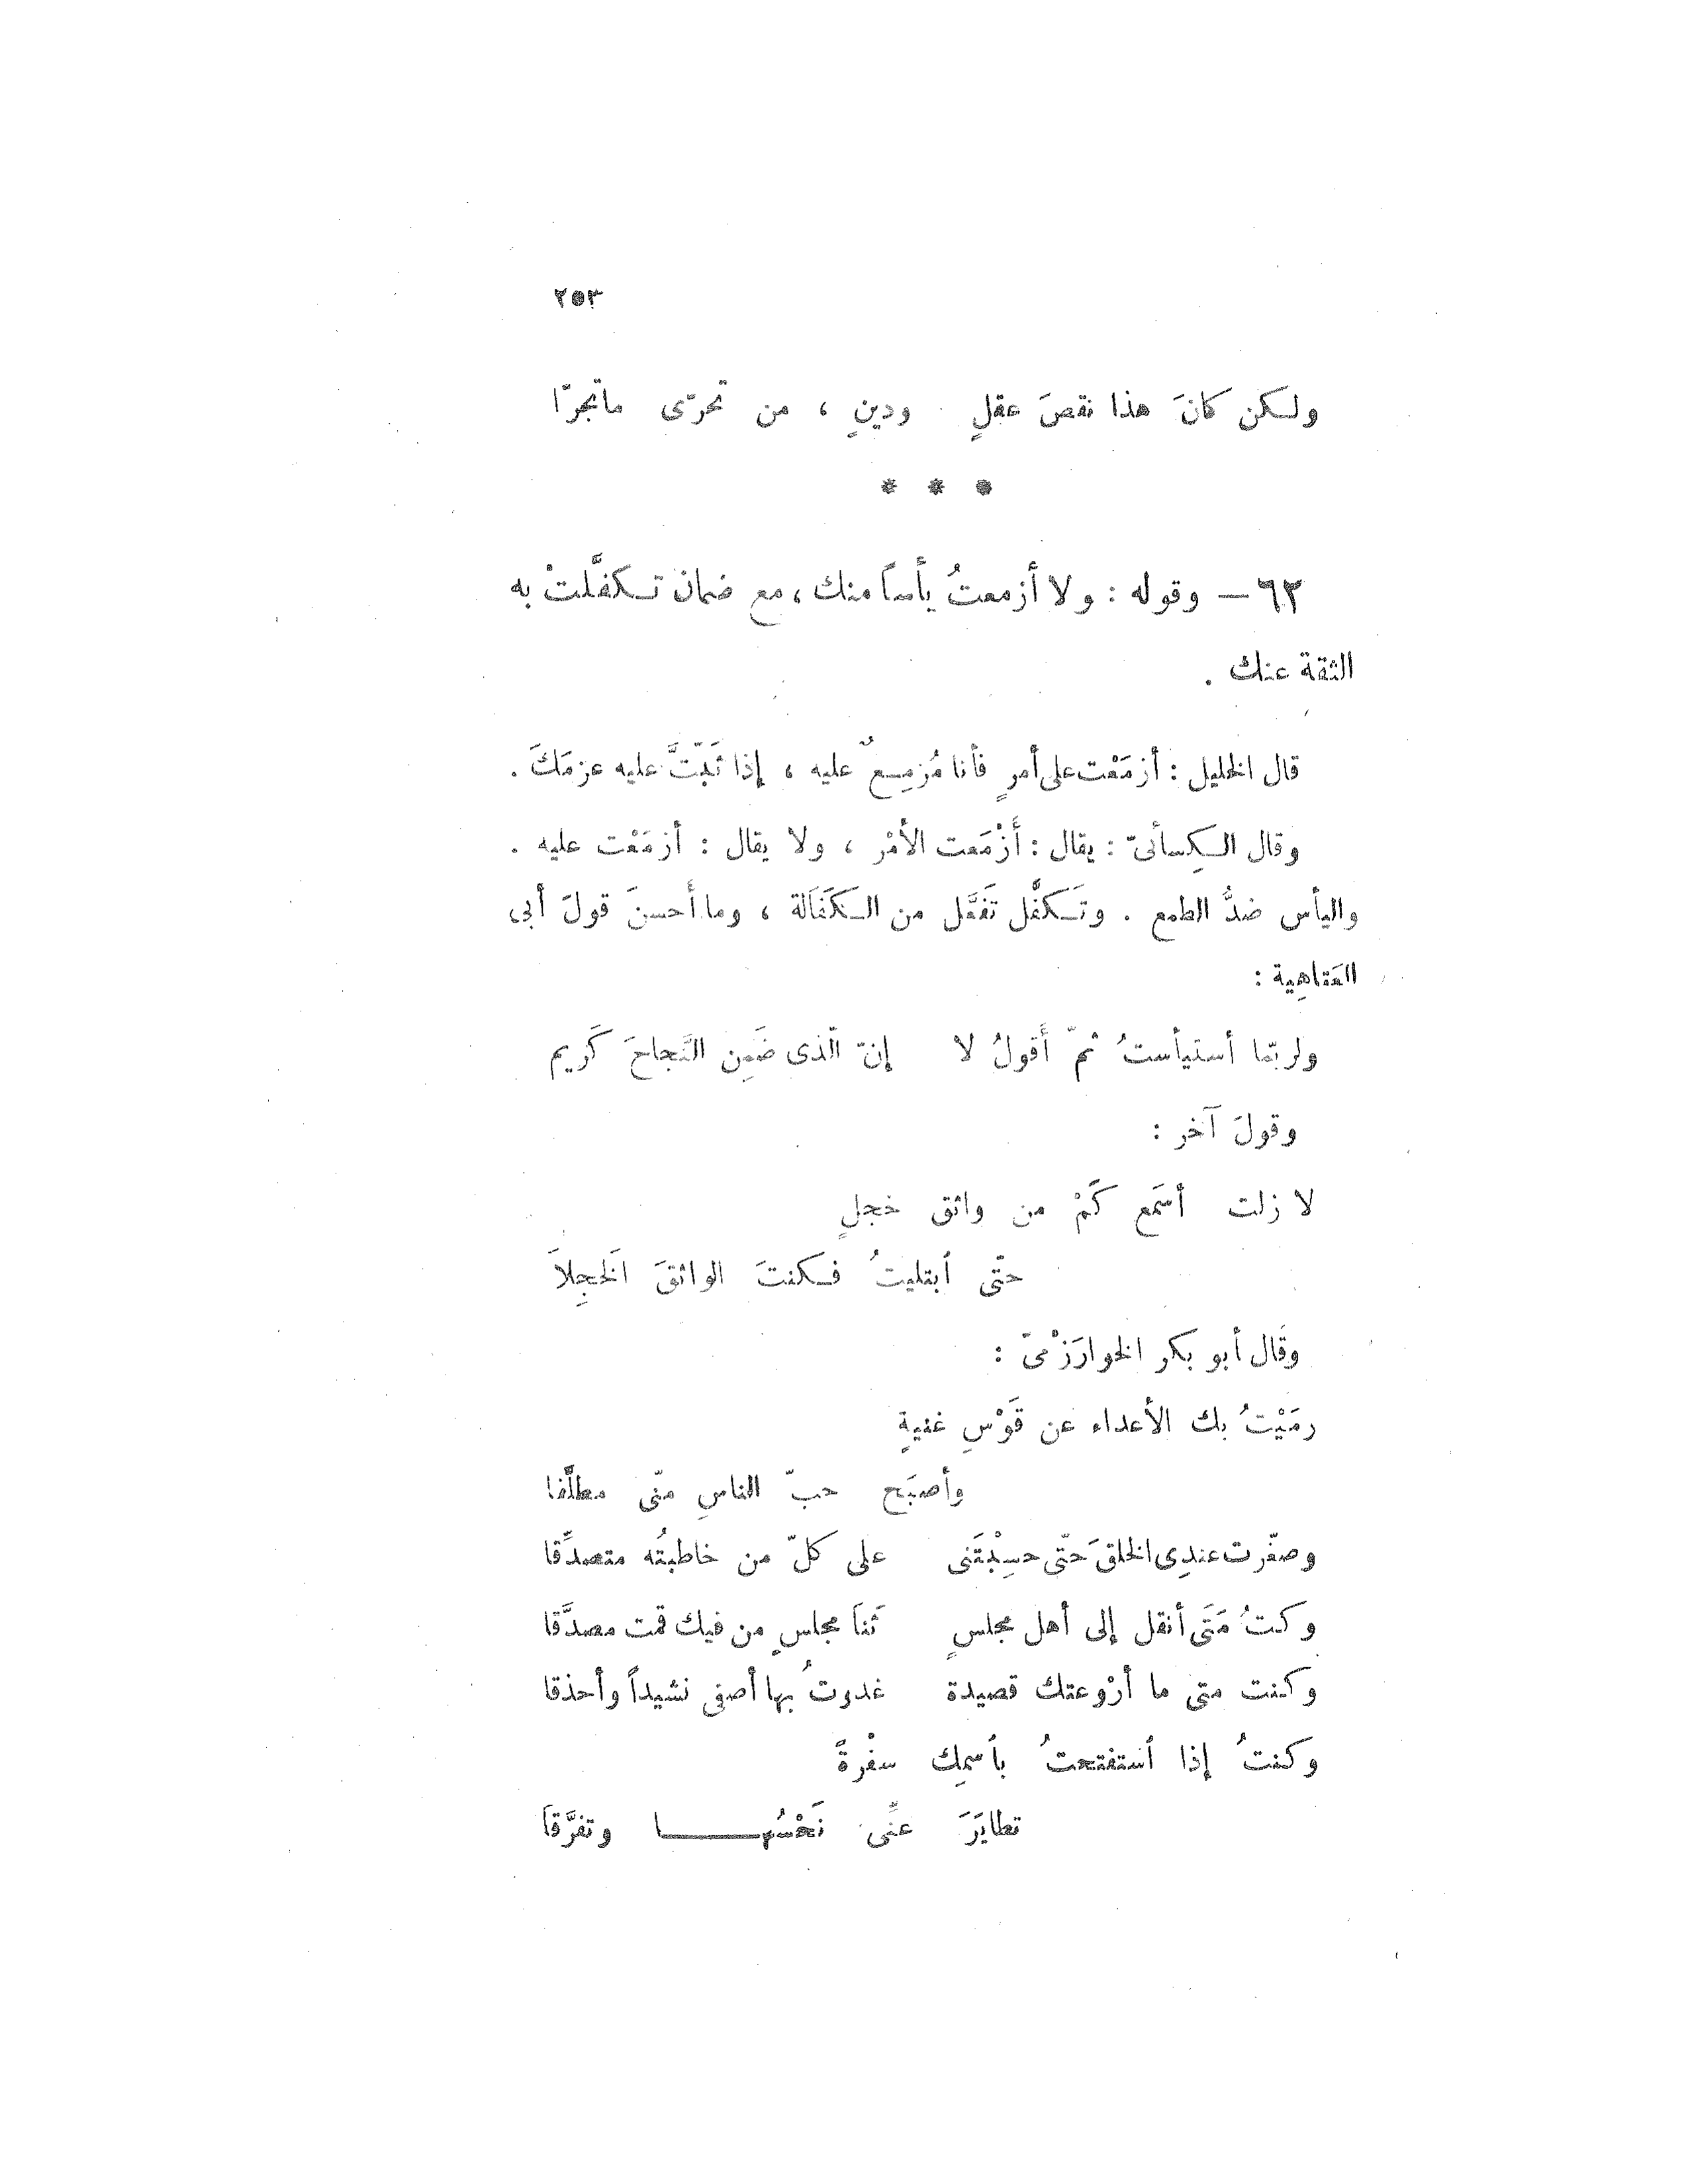 ٢٥٣
ولكن كانَ هذا نقصَ عقلٍ ودينٍ ، من تحرّى ماتجرّا
* * *
٦٢ — وقوله : ولا أزمعتُ يأساً منك ، مع ضمان تكفَّلتْ به
الثقة عنك .
قال الخليل : أزمَعْت على أمرٍ فأنا مُزمِعٌ عليه ، إذا ثَبّتَّ عليه عزمَكَ .
وقال الكِسائىّ : يقال : أَزْمَعت الأمْر ، ولا يقال : أزمَعْت عليه .
واليأس ضدُّ الطمع . وتَكفَّل تَفَعَّل من الكَفَالة ، وما أَحسنَ قولَ أبى
العَتاهِية :
ولربّما أستيأستُ ثمّ أَقولُ لا إنّ الّذى ضَمِن النَّجاحَ كَريم
وقولَ آخر :
لا زلت أسَمع كَمْ من واثق خجلٍ
حتّى أبتليتُ فكنتَ الواثقَ الَخجِلاَ
وقَال أبو بكر الخوارَزْمىّ :
رمَيْتُ بك الأعداء عن قَوْسِ غنيةٍ
وأصبَح حبّ الناسِ منّى مطلَّقا
وصغّرت عندِى الخلقَ حتّى حسِبْتَنى على كلّ من خاطبتُه متصدِّقا
وكنتُ مَتَى أنقل إلى أهل مجلسٍ ثَناَ مجلسٍ من فيك قمت مصدَّقا
وكنت متى ما أرْوعتك قصيدة غدوتُ بها أصفى نشيداً وأحذقا
وكنتُ إذا أستفتحتُ بأسمِك سفْرةً
تطايَرَ عنِّى نَحْسُها وتفرَّقاَ